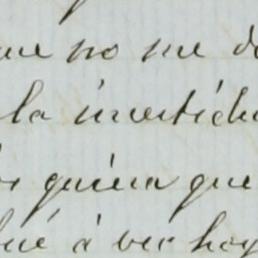 que no me d
la incertidu
quiera que
fué á ver hoy